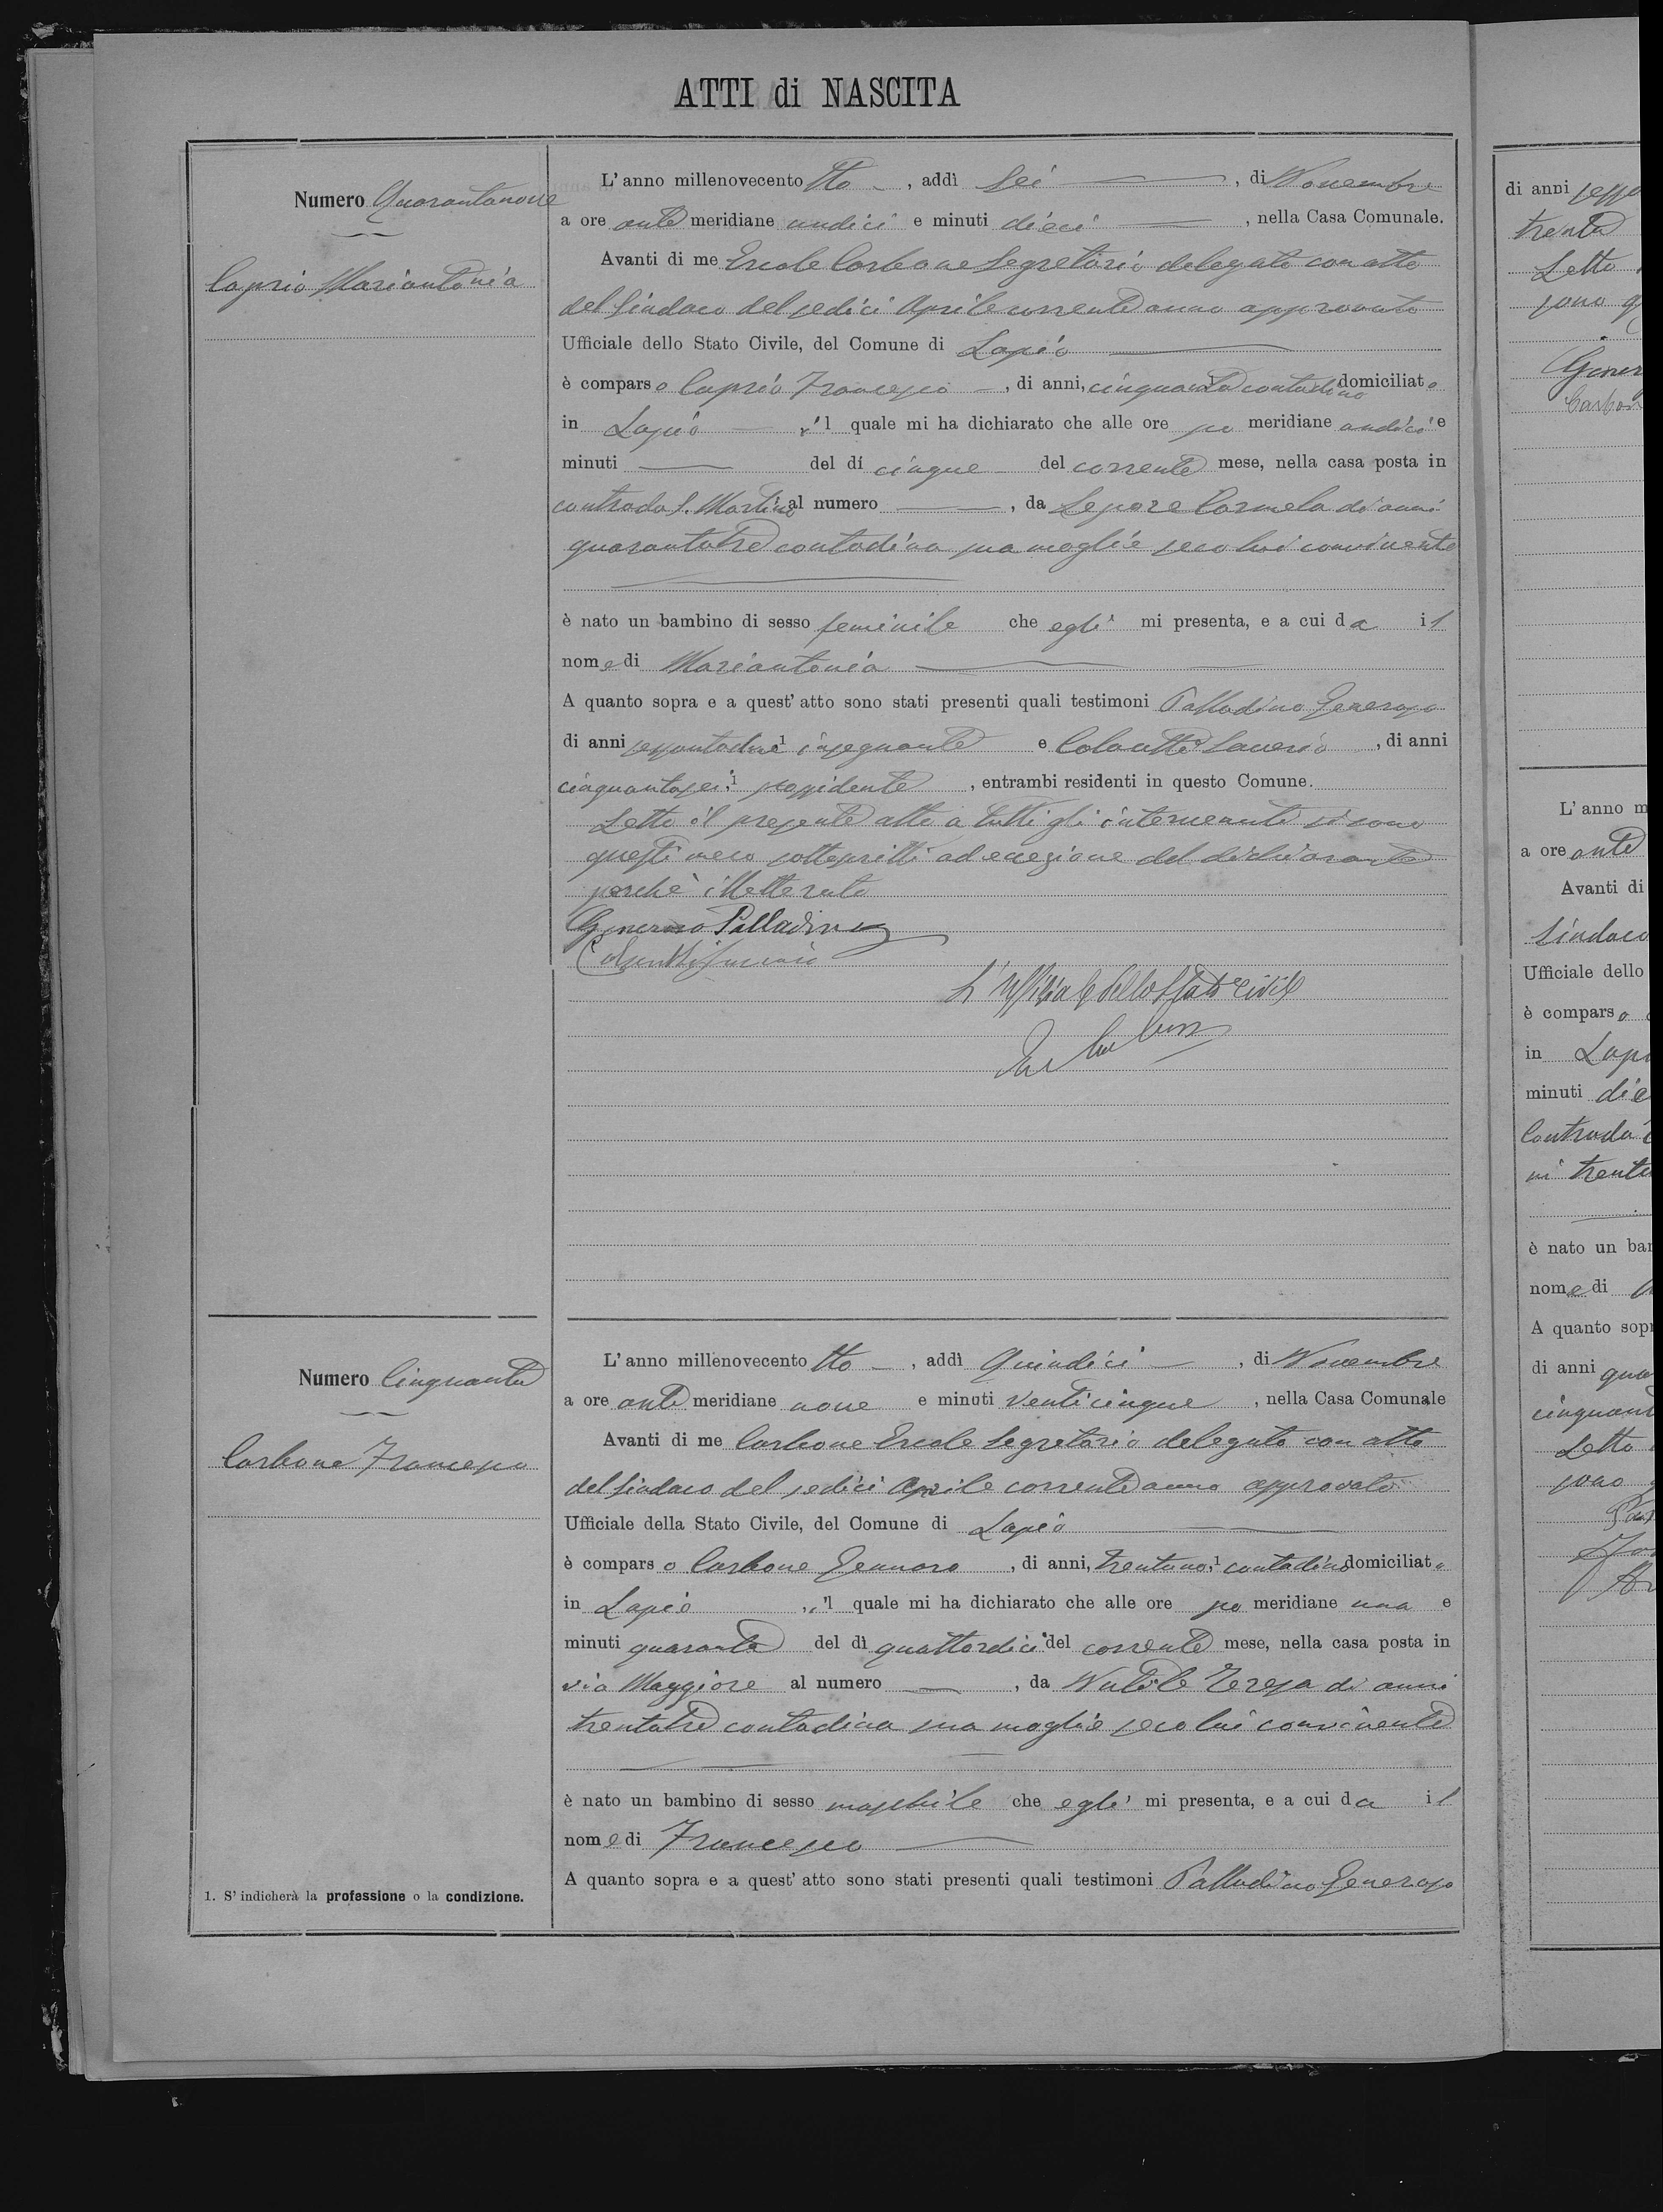 ATTI di NASCITA
Numero Quarantanove
Caprio Mariantonia
L'anno millenovecento tto, addì Sei, di Novembre
a ore ante meridiane undici e minuti dieci, nella Casa Comunale.
Avanti di me Ercole Carbone Segretario delegato con atto
del Sindaco del sedici Aprile corrente anno approvato
Ufficiale dello Stato Civile, del Comune di Lapio
è comparso Caprio Francesco, di anni, cinquanta 1 contadino domiciliato
in Lapio il quale mi ha dichiarato che alle ore po meridiane undici e
minuti del dí cinque del corrente mese, nella casa posta in
contrada S. Martino al numero, da Lepore Carmela di anni
quarantatre contadina sua moglie seco lui convivente
è nato un bambino di sesso feminile che egli mi presenta, e a cui da il
nome di Mariantonia
A quanto sopra e a quest' atto sono stati presenti quali testimoni Palladino Generoso
di anni 1 insegnante e Colantti Saverio, di anni
cinquantasei 1 possidente, entrambi residenti in questo Comune.
Letto il presente atto a tutti gli intervenuti si sono
questi meco sottoscritti ad eccezione del dichiarante
perchè illetterato
Generoso Palladino
L'Uffiziale dello Stato Civile
Numero Cinquanta
Carbone Francesco
L'anno millenovecento tto, addì Quindici, di Novembre
a ore ante meridiane nove e minuti venticinque, nella Casa Comunale
Avanti di me Carbone Ercole Segretario delegato con atto
del Sindaco del sedici Aprile corrente anno approvato
Ufficiale della Stato Civile, del Comune di Lapio
è comparso Carbone Gennaro, di anni, trentuno 1 contadino domiciliato
in Lapio, il quale mi ha dichiarato che alle ore po meridiane una e
minuti quaranta del dì quattordici del corrente mese, nella casa posta in
via Maggiore al numero, da Natale Teresa di anni
trentatre contadina sua moglie seco lui convivente
è nato un bambino di sesso maschile che egli mi presenta, e a cui da il
nome di Francesco
A quanto sopra e a quest' atto sono stati presenti quali testimoni Palladino Generoso
1. S' indicherà la professione o la condizione.
di anni
trenta
Letto
sono
Gener
Carbon
L' anno m
a ore ante
Avanti di
Sindaco
Ufficiale dello
è comparso
in Lapi
minuti die
Contrada
ni trenta
è nato un ba
nome di
A quanto sop
di anni qua
cinquant
Letto
sono